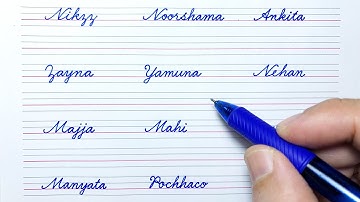 Nikzz Noorshama Ankita
Zayna Yamuna Nehan
Majja Mahi
Manyata Pochhaco